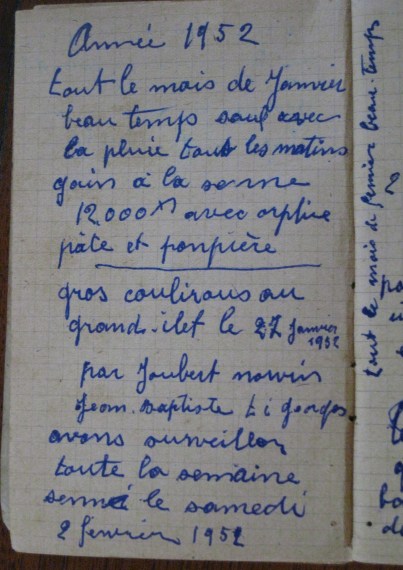 Année 1952
tout le mois de Janvier
beau temps sauf avec
la pluie tout les matins
gain à la senne
12.000 avec orphie
pâte et poupière
gros coulirous au
grand-ilet le 27 Janvier
1952
par Joubert
Jean-Baptiste ti Georges
avons surveiller
toute la semaine
senné le samedi
2 fevrier 1952
tout le mois de fevrier beau temps